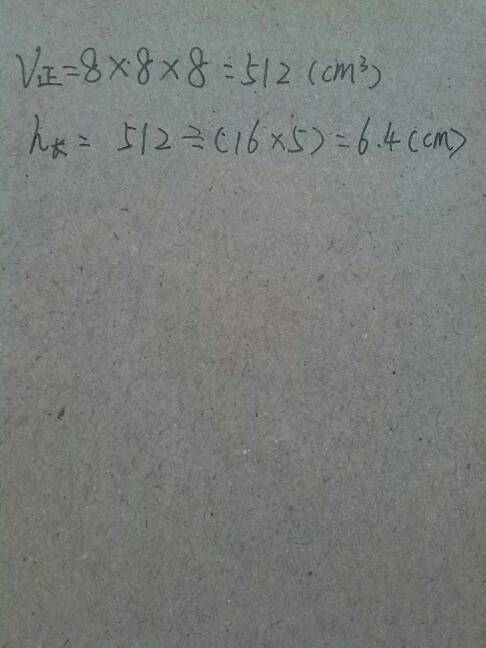 V正=8×8×8=512(cm³)
h长=512÷(16×5)=6.4(cm)